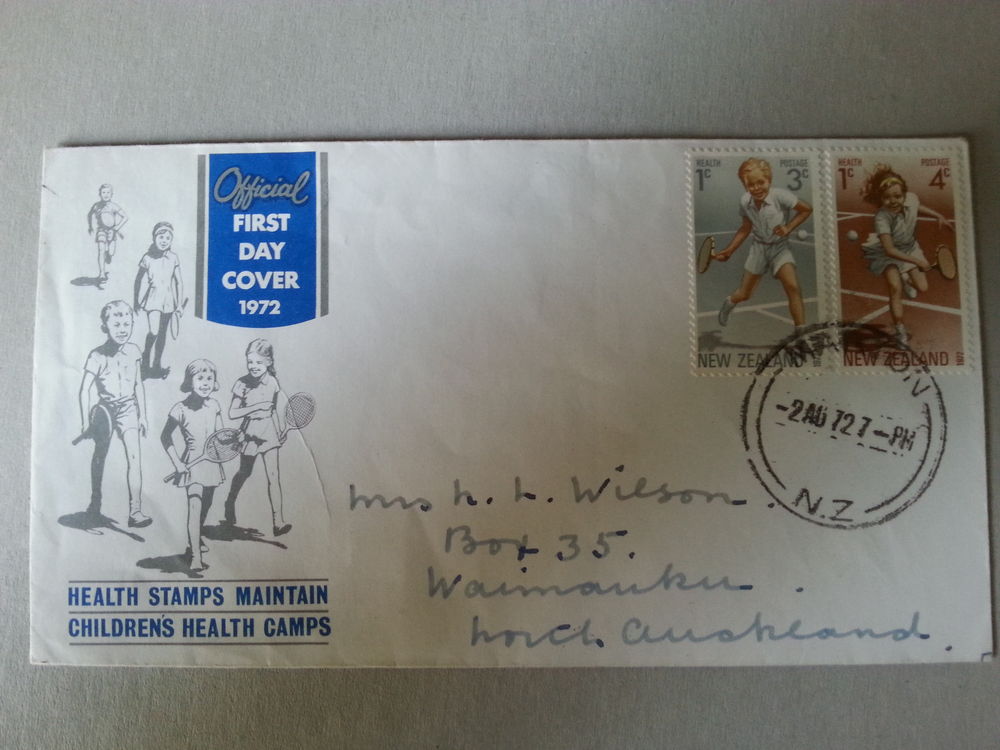 Official
FIRST
DAY
COVER
1972
HEALTH POSTAGE
1c 3c
NEW ZEALAND
HEALTH POSTAGE
1c 4c
NEW ZEALAND
-2AU 72 7-PM
N.Z
Mrs L. L. Wilson.
Box 35.
Waimauku.
North Auckland.
HEALTH STAMPS MAINTAIN
CHILDREN'S HEALTH CAMPS